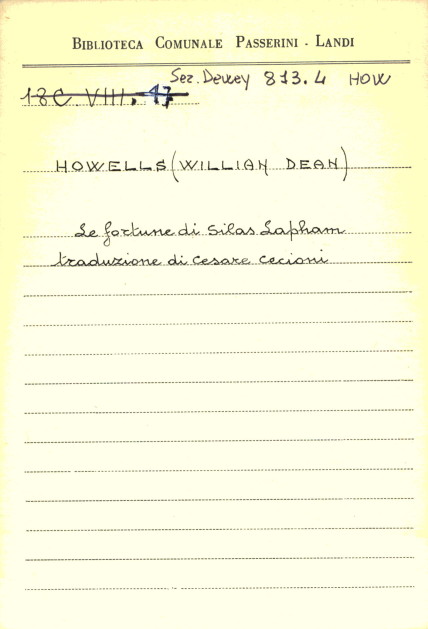 BIBLIOTECA COMUNALE PASSERINI - LANDI
Sez. Dewey 813.4 HOW
18C. VIII. 47
HOWELLS (WILLIAN DEAN)
Le fortune di Silas Lapham
traduzione di Cesare Cecioni